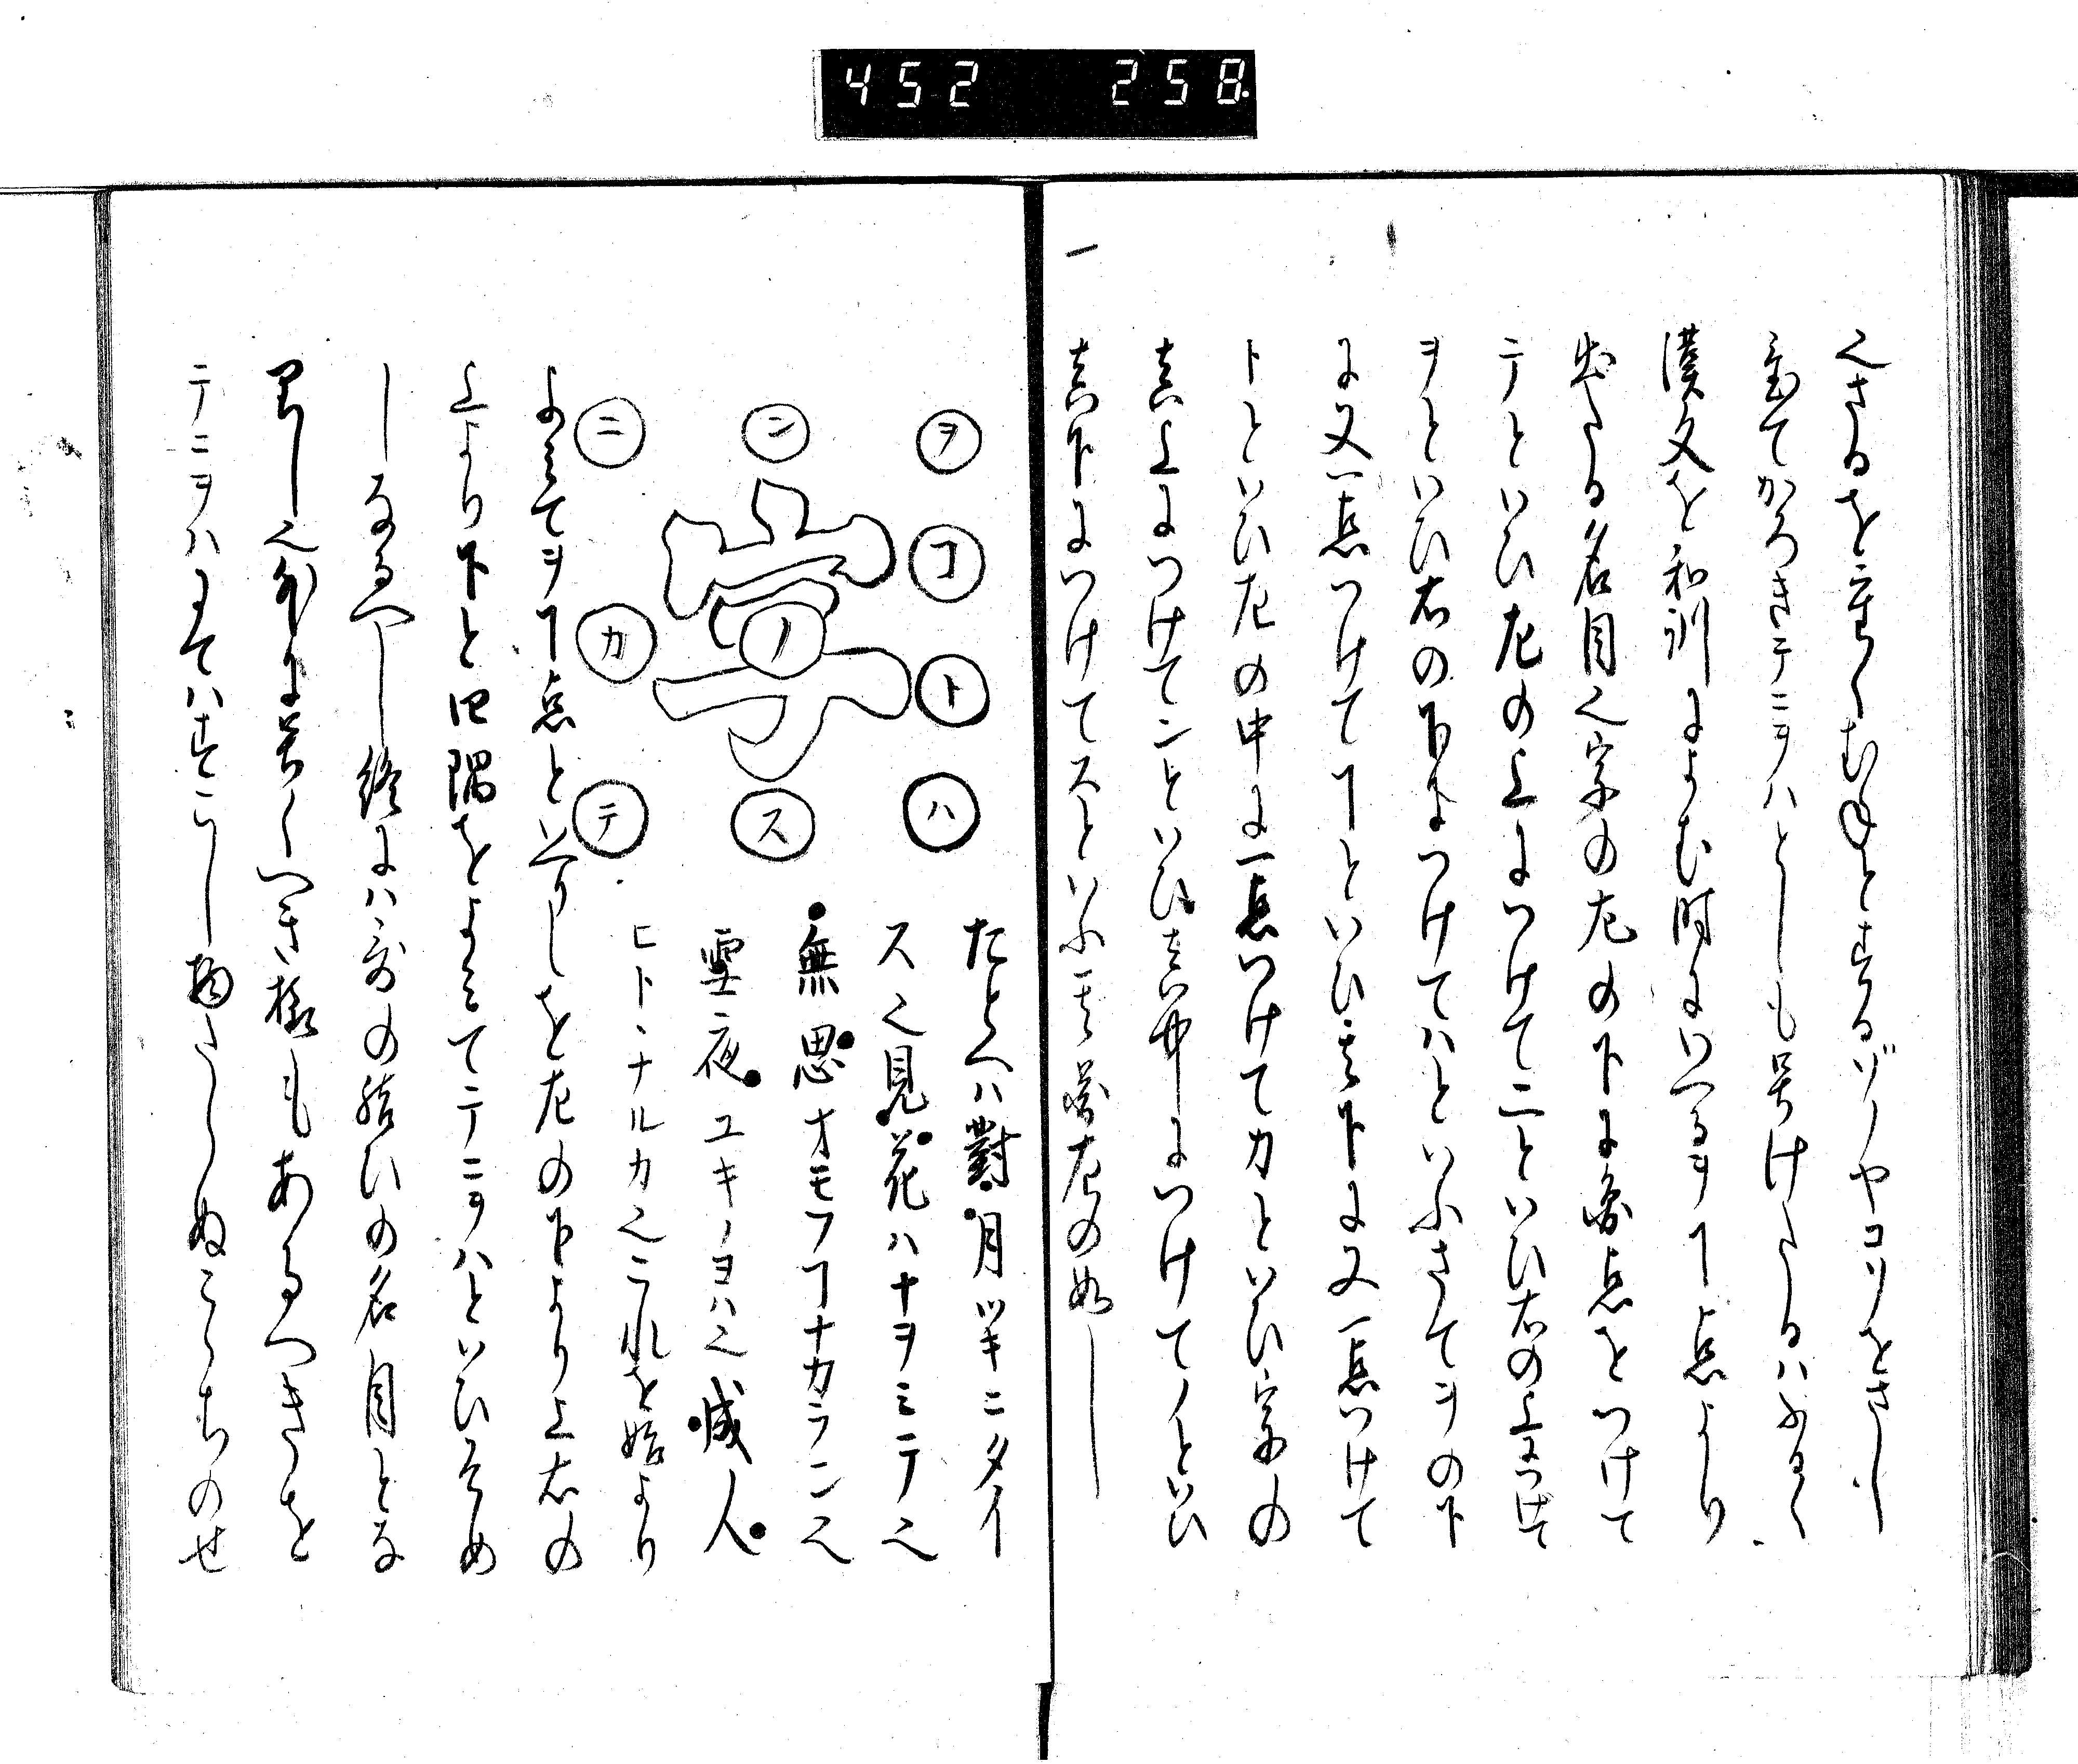 452 258
也さるを重くむねとするゾノヤコソをさし
漢文を和訓によむ時にいへるヲヿ点より
出たる名目也字の左の下に点をつけて
テといひ左の上につけてニといひ右の上につけて
ヲといひ右の下につけてハといふさてヲの下
に又一点つけてヿといひ其下に又一点つけて
トといひ左の中に一点つけてカといひ字の
真上につけてンといひ真中につけてノといひ
一
真下につけてスといふ其図左の如し
ヲ
コ
ト
ハ
ン
ノ
ス
ニ
カ
テ
字
たとへハ對月ツキニタイ
ス也見花ハナヲミテ也
無思オモフヿナカラン也
雪夜ユキノヨハ也誠人
ヒトヽナルカ也これを始より
よみてヲヿ点といへりしを左の下より上右の
上より下と四隅をよみてテニヲハといひそめ
しなるへし終にハ哥の結ひの名目とな
れりし也外に号くへき様もあるへきを
テニヲハにてハすこし物たらぬこゝちのせ